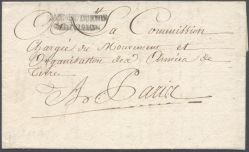 La Commission
Chargée du Mouvement et
Organisation des Armées de
Terre
A Paris